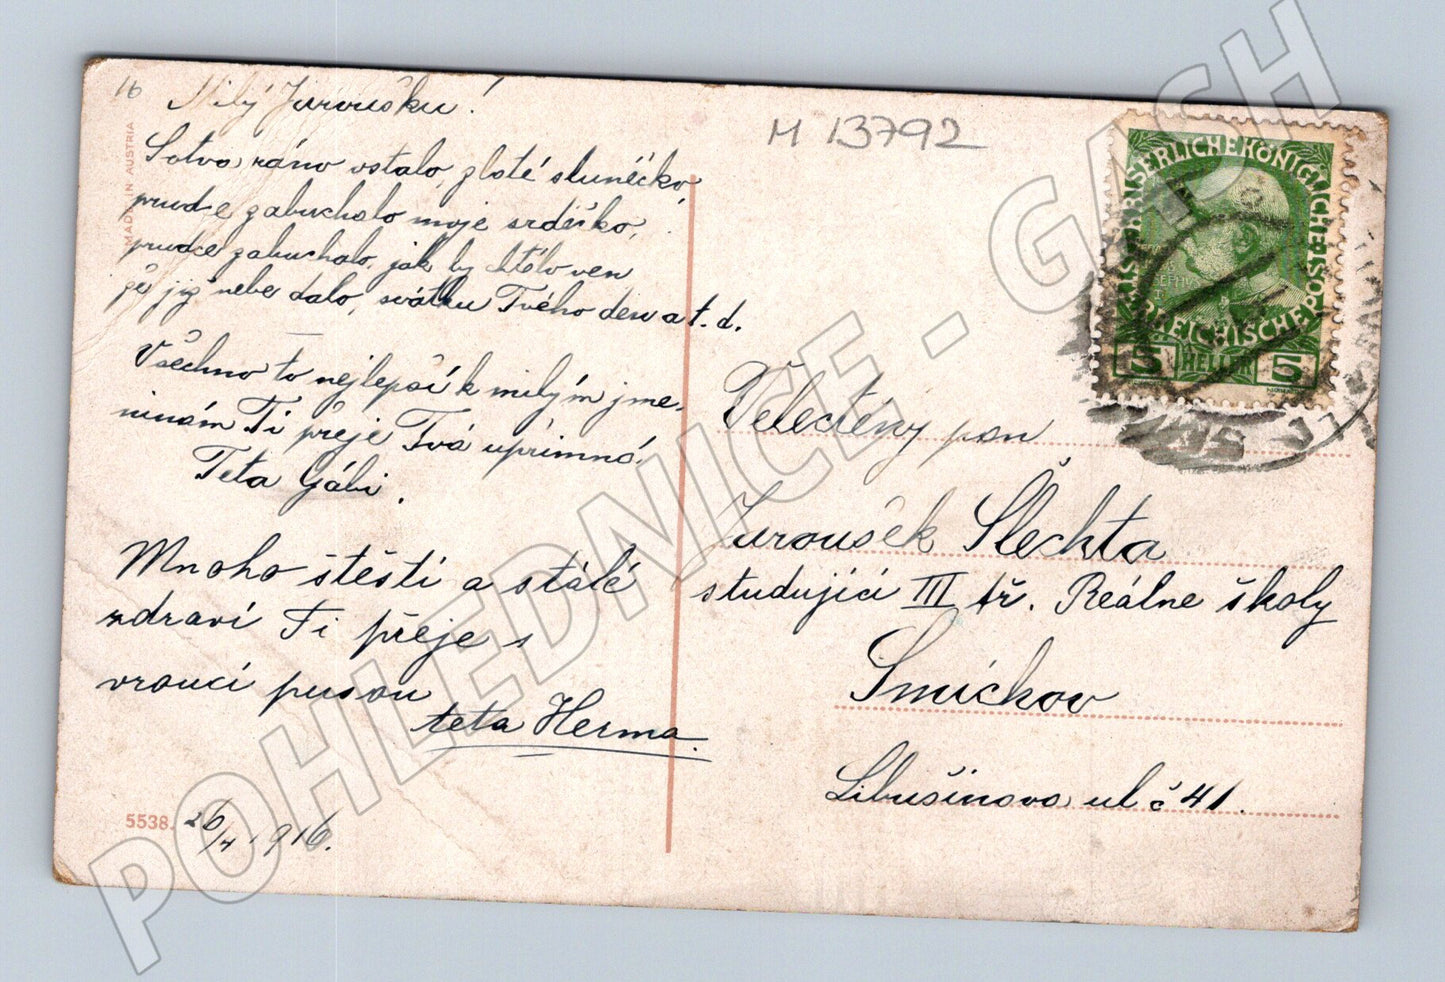 16
Milý Jaroušku!
Sotva ráno vstalo, zlaté slunéčko,
prudce zabuchalo moje srdéčko,
prudce zabuchalo, jak by chtělo ven
že již nebe dalo, svátku Tvého den a t. d.
Všechno to nejlepší k milým jme-
ninám Ti přeje Tvá upřímná
Teta Gábi.
Mnoho štěstí a stálé
zdraví Ti přeje s
vroucí pusou
teta Herma.
26/4. 916.
5538.
MADE IN AUSTRIA
M 13792
KAISERLICHE KÖNIGLICHE
ÖSTERREICHISCHE POST
5 HELLER 5
Velectěný pan
Jaroušek Šlechta
studující III tř. Reálne školy
Smíchov
Libušinova ul č 41.
POHLEDNICE - GASH